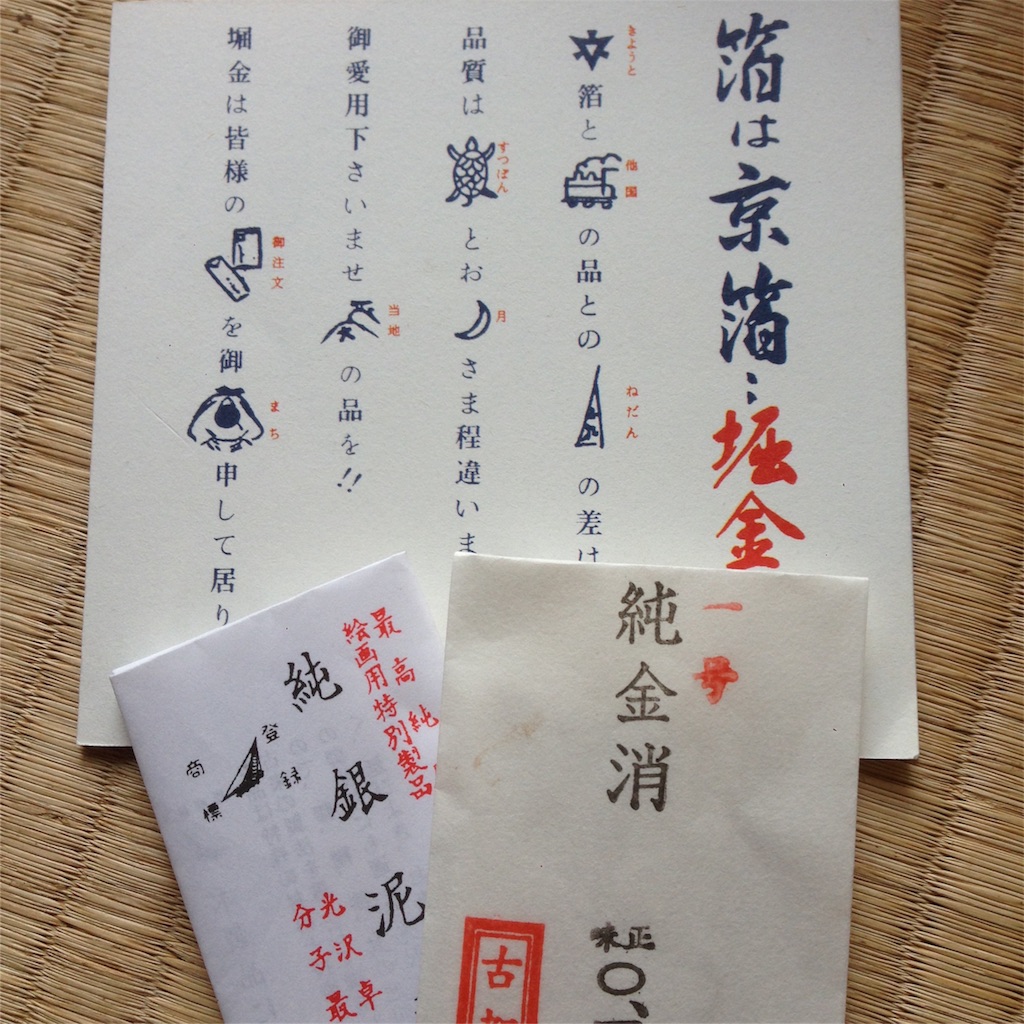 箔は京箔:堀金
きようと箔と他国の品とのねだんの差は
品質はすつぽんとお月さま程違いま
御愛用下さいませ当地の品を!!
堀金は皆様の御注文を御まち申して居り
一号
純金消
正味
〇、
古
最高純
絵画用特別製品
純銀泥
登録
商標
光沢卓
分子最